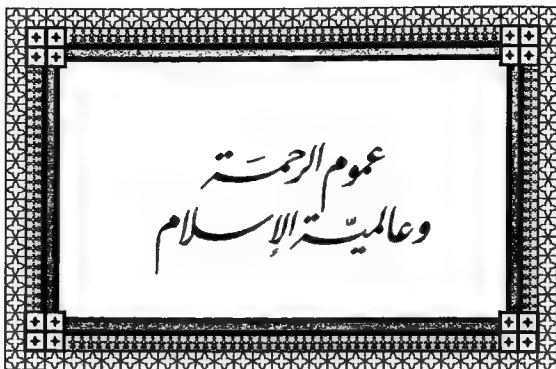 عموم الرحمة
وعالميّة الإسلام